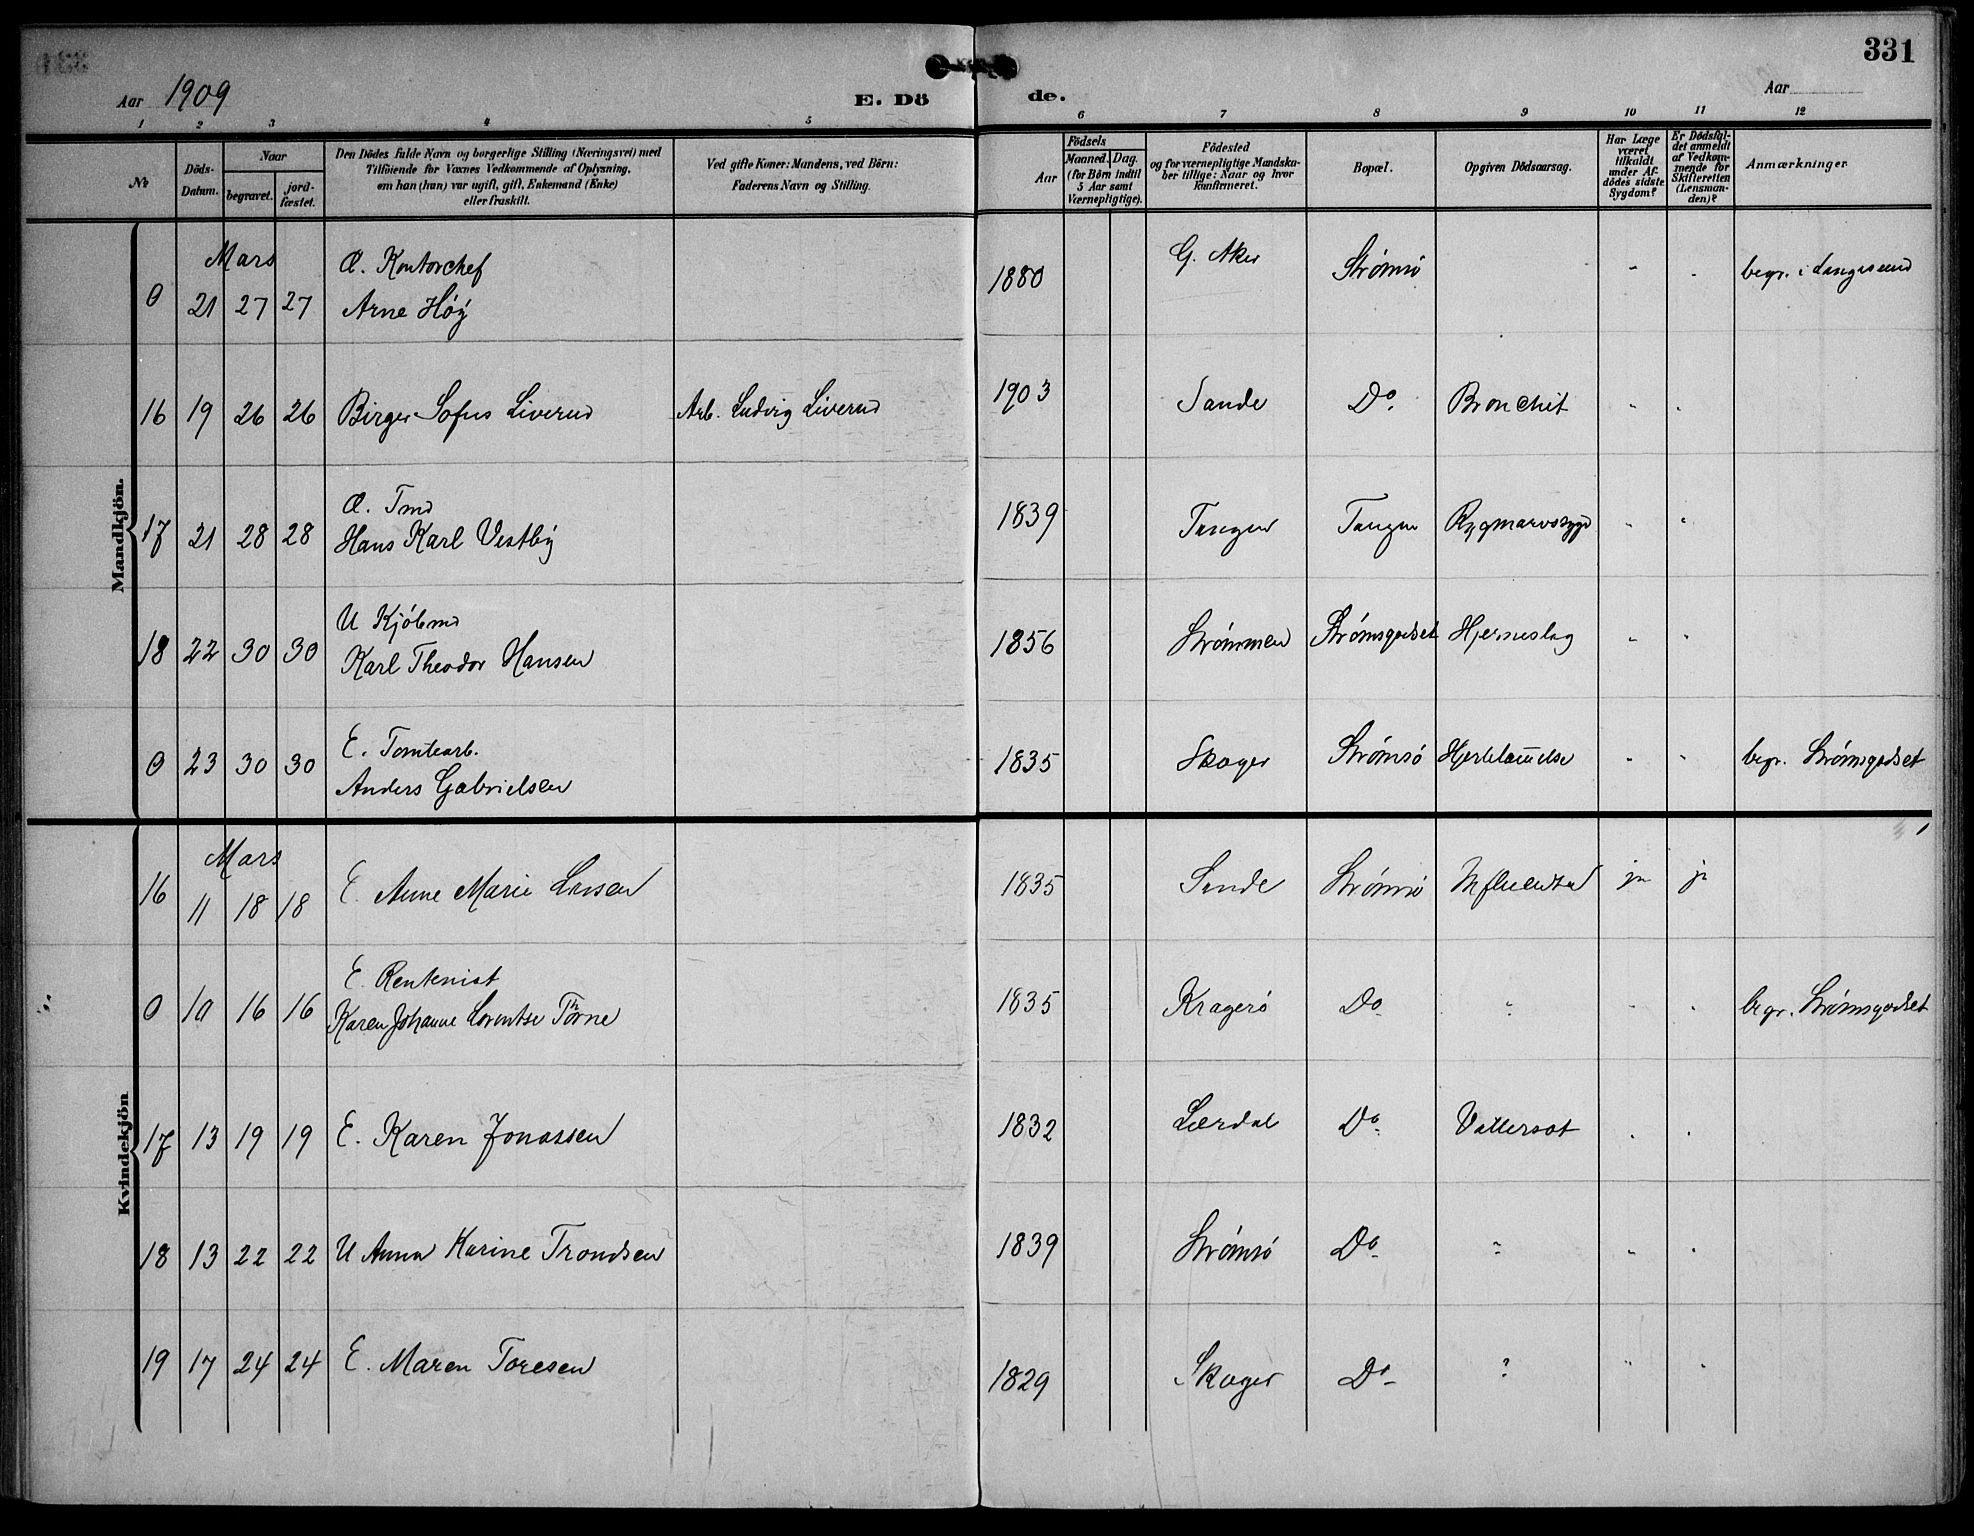 331
Aar 1909 E. Dö de. Aar
1 2 3 4 5 6 7 8 9 10 11 12
№
Döds-
Datum.
Naar
begravet.
jord-
fæstet.
Den Dödes fulde Navn og borgerlige Stilling (Næringsvei) med
Tilföiende for Voxnes Vedkommende af Oplysning,
om han (hun) var ugift, gift, Enkemand (Enke)
eller fraskilt.
Ved gifte Koner: Mandens, ved Börn:
Faderens Navn og Stilling.
Födsels
Aar
Maaned. Dag.
(for Börn indtil
5 Aar samt
Værnepligtige).
Födested
og for værnepligtige Mandska-
ber tillige: Naar og hvor
konfirmeret.
Bopæl.
Opgiven Dödsaarsag.
Har Læge
været
tilkaldt
under Af-
dödes sidste
Sygdom?
Er Dödsfal-
det anmeldt
af Vedkom-
mende for
Skifteretten
(Lensman-
den)?
Anmærkninger
Mandkjön.
Mars Æ. Kontorchef G. Aker
0 21 27 27 Arne Höy 1880 Strømsø " " begr. i Langesund
16 19 26 26 Birger Sofus Liverud Arb. Ludvig Liverud 1903 Sande Do. Bronchit " "
Æ. Tmd
17 21 28 28 Hans Karl Vestby 1839 Tangen Tangen Rygmarvssygd " "
U Kjöbmd
18 22 30 30 Karl Theodor Hansen 1856 Strømmen Strømsgodset Hjerneslag " "
E. Tomtearb.
0 23 30 30 Anders Gabrielsen 1835 Skoger Strømsø Hjertelam̄else " " begr. Strømsgodset
Kvindekjön
Mars
16 11 18 18 E. Anne Marie Larsen 1835 Sande Strømsø Influentsa ja ja
E. Rentenist
0 10 16 16 Karen Johanne Lorentse Thorne 1835 Kragerø Do " " " begr. Strømsgodset
17 13 19 19 E. Karen Jonassen 1832 Lærdal Do. Vattersot " "
18 13 22 22 U Anna Karine Trondsen 1839 Strømsø Do " " "
19 17 24 24 E. Maren Toresen 1829 Skoger Do ? " "